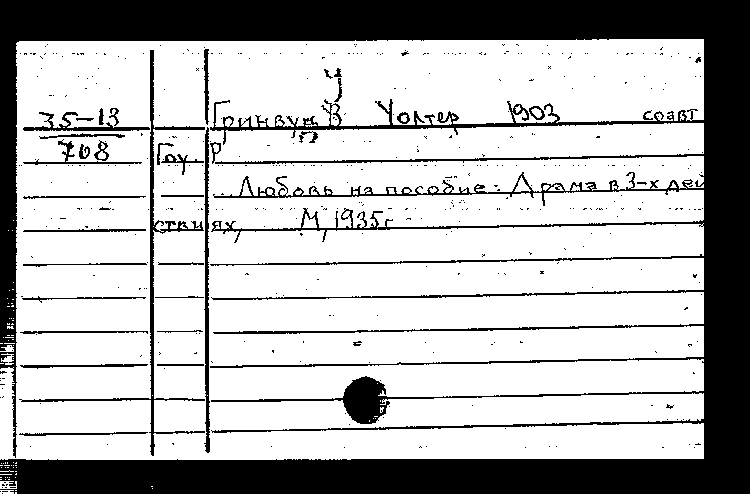 У
35-13 Гринвуд В Уолтер 1903 соавт
708 Гоу Р
Любовь на пособие: Драма в 3-х дей
ствиях, М, 1935г